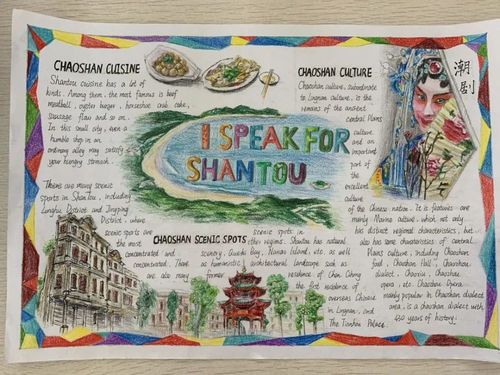 CHAOSHAN CUISINE
Shantou cuisine has a lot of
kinds. Among them, the most famous is beef
meatball, oyster burger, horseshoe crab cake,
sausage flan and so on.
In this small city, even a
humble shop in an
ordinary alley may satisfy
your hungry stomach.
CHAOSHAN CULTURE
Chaoshan culture, subordinate
to Lingnan culture, is
the remains of the ancient
central Plains
culture and
an important
part of
the
excellent
culture
of the Chinese nation. It is features are
mainly Marine culture, which not only
has distinct regional characteristics, but
also has some characteristics of central
Plains culture, including Chaoshan
food, Chaoshan Hall, Chaoshan
dialect, Chaoxiu, Chaoshan
opera, etc. Chaoshan Opera
mainly popular in Chaoshan dialect
area, is a chaoshan dialect with
430 years of history.
潮
剧
I SPEAK FOR
SHANTOU
There are many scenic
spots in Shantou, including
Longhu District and Jinping
District, where
scenic spots are
the most
concentrated and
concentrated. There
are also many
CHAOSHAN SCENIC SPOTS
scenic spots in
other regions. Shantou has natural
scenery, Queshi Bay, Nanao Island, etc. as well
as humanistic architectural landscape such as
former residence of Chen Cihong
the first residence of
overseas Chinese
in Lingnan, and
The Tianhou Palace.